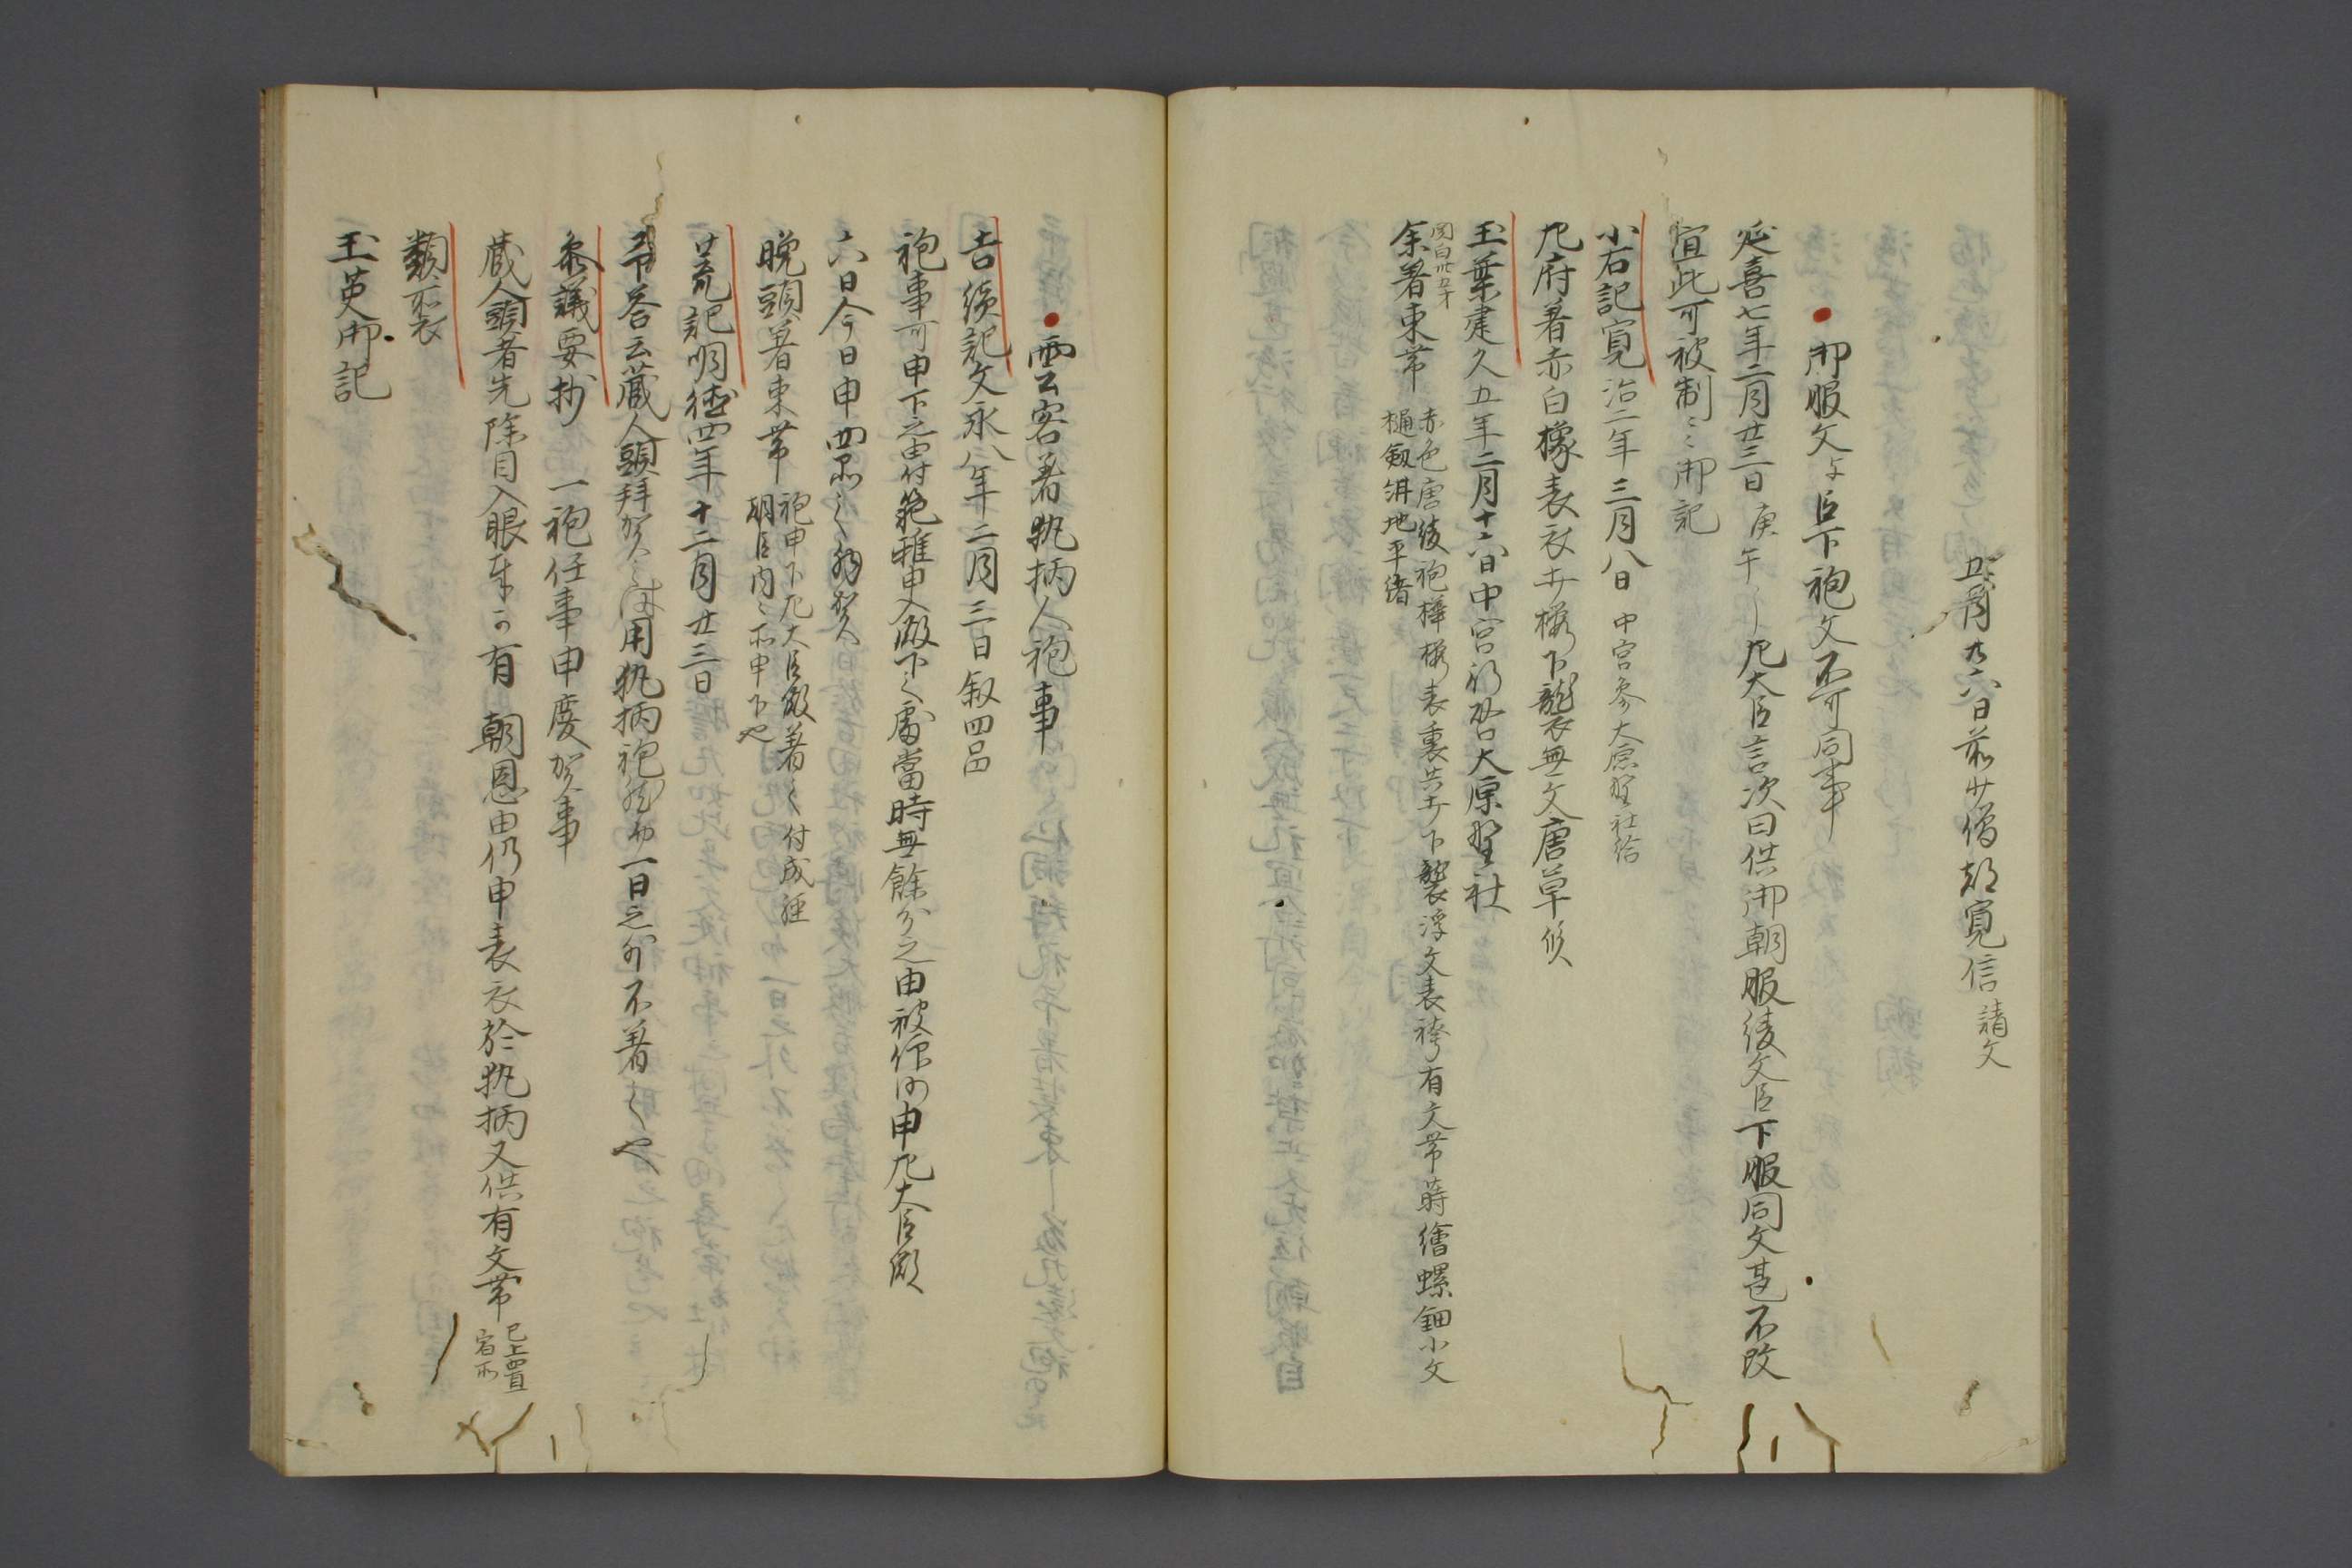 五月廿八日前少僧都寛信請文
御服文与臣下袍文不可同事
延喜七年二月廿三日庚午左大臣言次曰供御朝服綾文臣下服同文甚不改
宜此可被制々御記
小右記寛治二年三月八日中宮参大原野社給
左府着赤白橡表衣桜下襲無文唐草
玉葉建久五年二月十六日中宮行啓大原野社
余著束帯赤色唐綾袍樺桜表裏共下襲浮文表袴有文帯蒔繪螺鈿小文
樋劔紺地平緒
雲客着執柄人袍事
吉続記文永八年二月三日叙四品
袍事可申下之由付範雅申入殿下之處當時無餘分之由被仰申左大臣殿
六日今日申四品之拝賀
晩頭着束帯袍申下左大臣殿着之付成経
朝臣内々所申下也
荒記明徳四年十二月廿三日
答云蔵人頭拝賀用執柄袍一日之外不着之也
参議要抄 一袍任事申慶賀事
蔵人頭者先除目入眼有朝恩由仍申表衣於執柄又供有文帯已上置
宿所
類衣
玉英御記